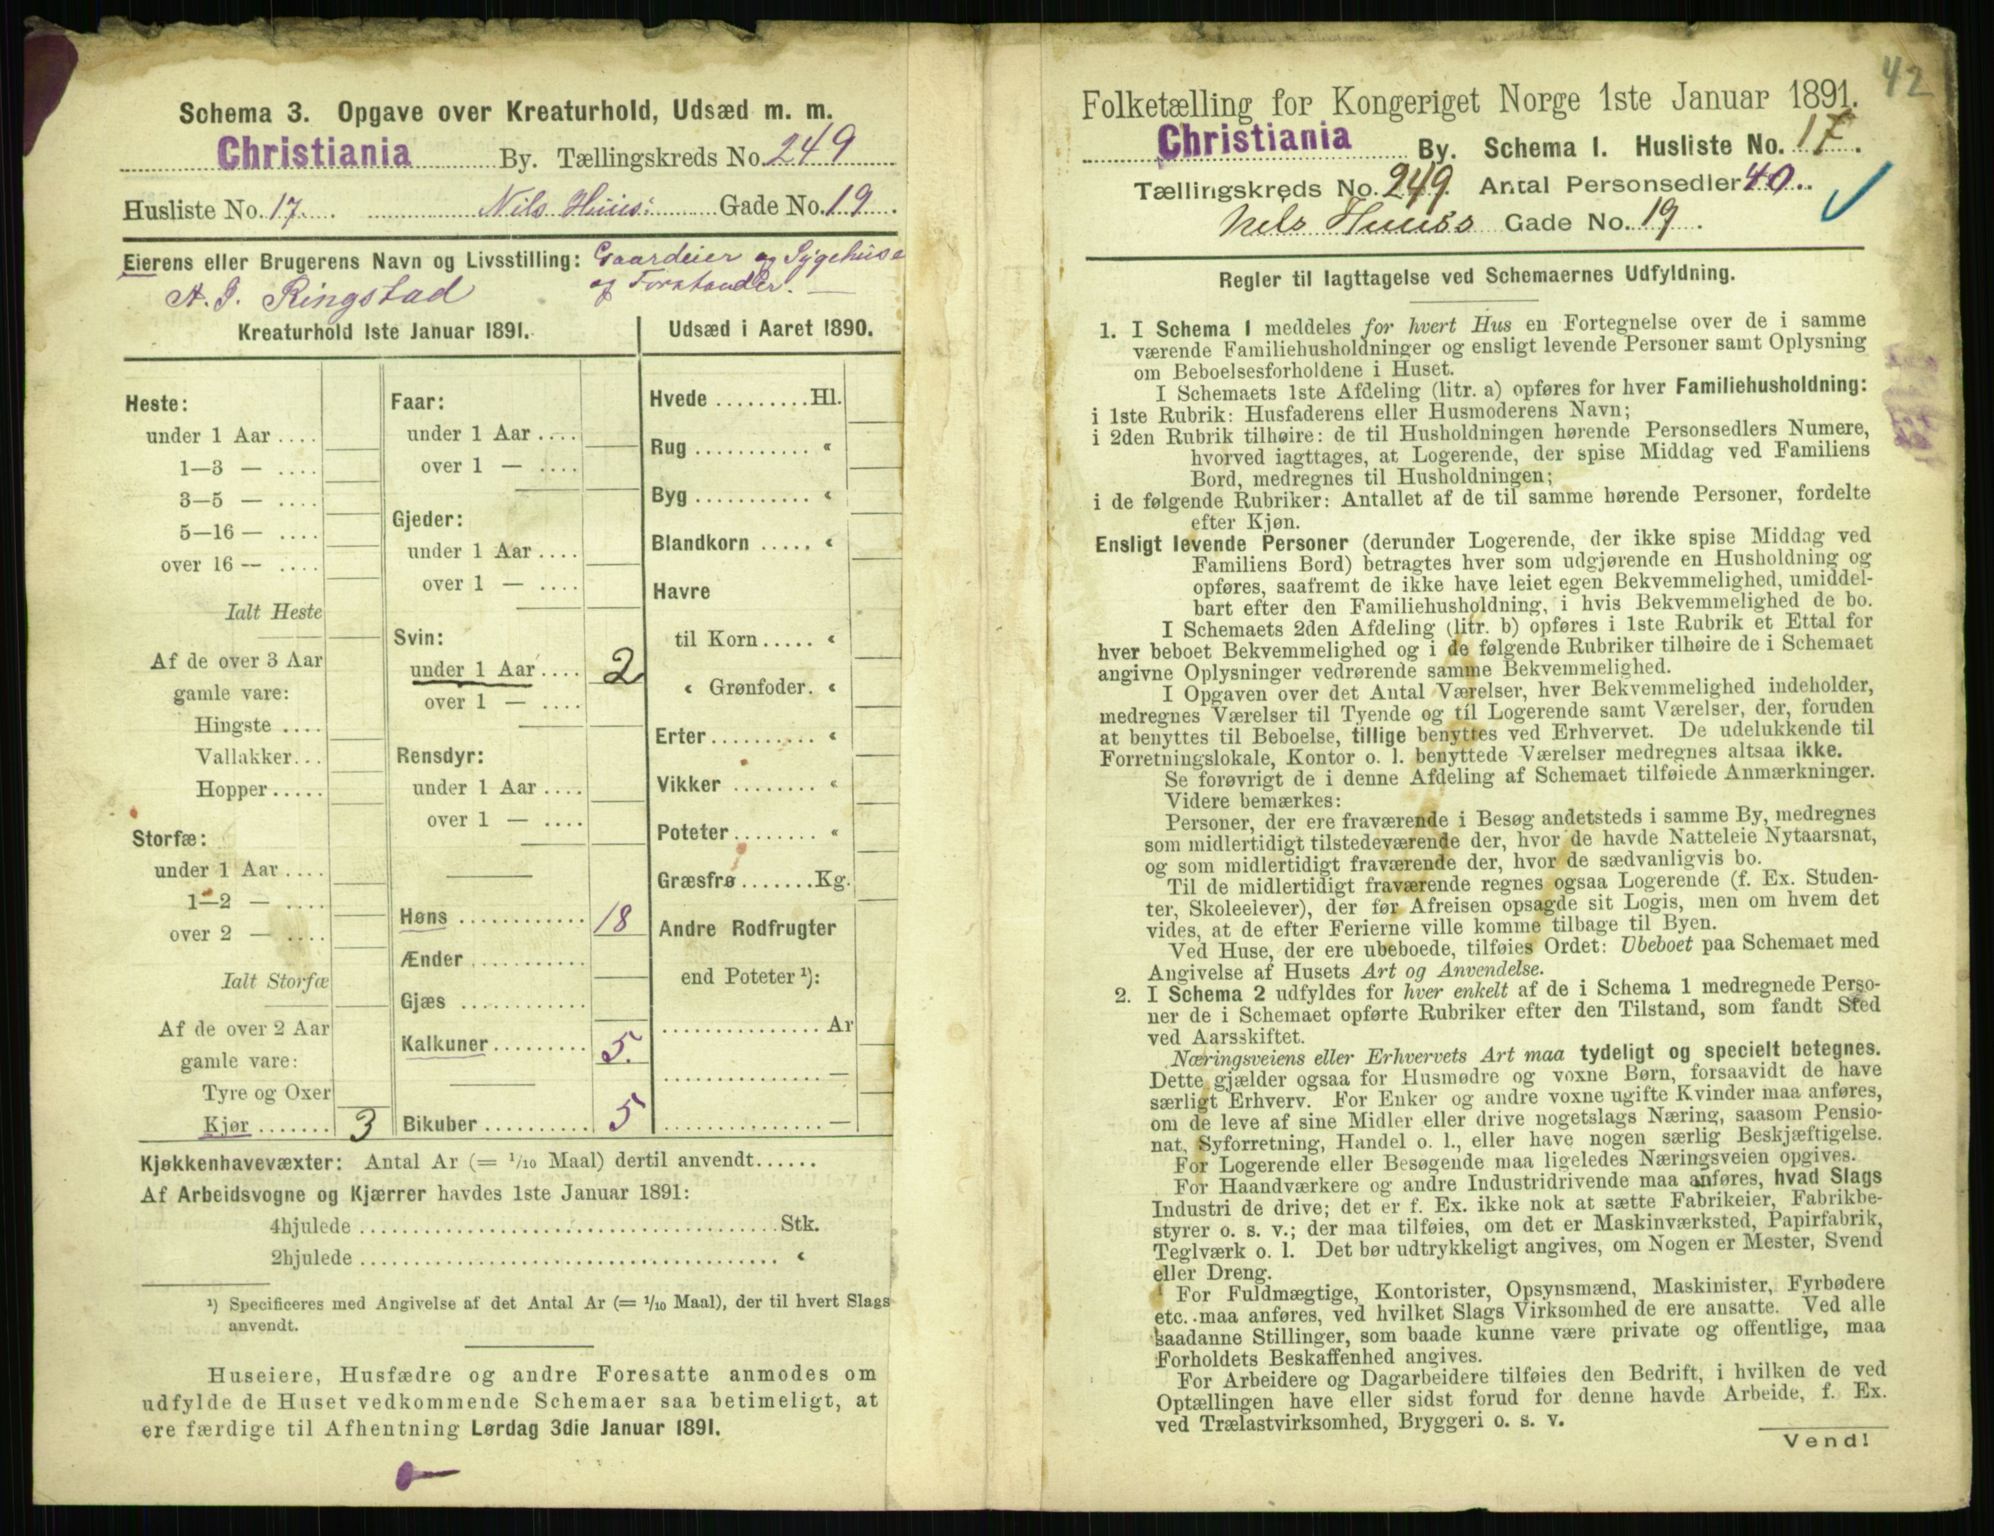 Schema 3. Opgave over Kreaturhold, Udsæd m. m.
Christiania By. Tællingskreds No. 249
Husliste No. 17. Nils Huus: Gade No. 19.
Eierens eller Brugerens Navn og Livsstilling: Gaardeier og Sygehus
A. J. Ringstad og Forstander.
Kreaturhold 1ste Januar 1891.
Heste:
under 1 Aar ....
1—3 — ....
3—5 — ....
5—16 — ....
over 16 — ....
Ialt Heste
Af de over 3 Aar
gamle vare:
Hingste ....
Vallakker...
Hopper.....
Storfæ:
under 1 Aar ....
1—2 — ....
over 2 — ....
Ialt Storfæ
Af de over 2 Aar
gamle vare:
Tyre og Oxer
Kjør ....... 3
Faar:
under 1 Aar ....
over 1 — ....
Gjeder:
under 1 Aar ....
over 1 — ....
Svin:
under 1 Aar .... 2
over 1 — ....
Rensdyr:
under 1 Aar ....
over 1 — ....
Høns ............ 18
Ænder ...........
Gjæs ............
Kalkuner......... 5.
Bikuber .......... 5
Udsæd i Aaret 1890.
Hvede .........Hl.
Rug ........... «
Byg ........... «
Blandkorn ..... «
Havre
til Korn ..... «
« Grønfoder. «
Erter.......... «
Vikker ........ «
Poteter........ «
Græsfrø .......Kg.
Andre Rodfrugter
end Poteter ¹):
............... Ar
............... —
............... —
Kjøkkenhavevæxter: Antal Ar (= 1/10 Maal) dertil anvendt......
Af Arbeidsvogne og Kjærrer havdes 1ste Januar 1891:
4hjulede ........................................Stk.
2hjulede ........................................ «
¹) Specificeres med Angivelse af det Antal Ar (= 1/10 Maal), der til hvert Slags
anvendt.
Huseiere, Husfædre og andre Foresatte anmodes om
udfylde de Huset vedkommende Schemaer saa betimeligt, at
ere færdige til Afhentning Lørdag 3die Januar 1891.
42
Folketælling for Kongeriget Norge 1ste Januar 1891.
Christiania By. Schema 1. Husliste No. 17.
Tællingskreds No. 249 Antal Personsedler 40..
Nels Huuss Gade No. 19.
Regler til Iagttagelse ved Schemaernes Udfyldning.
1. I Schema 1 meddeles for hvert Hus en Fortegnelse over de i samme
værende Familiehusholdninger og ensligt levende Personer samt Oplysning
om Beboelsesforholdene i Huset.
I Schemaets 1ste Afdeling (litr. a) opføres for hver Familiehusholdning:
i 1ste Rubrik: Husfaderens eller Husmoderens Navn;
i 2den Rubrik tilhøire: de til Husholdningen hørende Personsedlers Numere,
hvorved iagttages, at Logerende, der spise Middag ved Familiens
Bord, medregnes til Husholdningen;
i de følgende Rubriker: Antallet af de til samme hørende Personer, fordelte
efter Kjøn.
Ensligt levende Personer (derunder Logerende, der ikke spise Middag ved
Familiens Bord) betragtes hver som udgjørende en Husholdning og
opføres, saafremt de ikke have leiet egen Bekvemmelighed, umiddel-
bart efter den Familiehusholdning, i hvis Bekvemmelighed de bo.
I Schemaets 2den Afdeling (litr. b) opføres i 1ste Rubrik et Ettal for
hver beboet Bekvemmelighed og i de følgende Rubriker tilhøire de i Schemaet
angivne Oplysninger vedrørende samme Bekvemmelighed.
I Opgaven over det Antal Værelser, hver Bekvemmelighed indeholder,
medregnes Værelser til Tyende og til Logerende samt Værelser, der, foruden
at benyttes til Beboelse, tillige benyttes ved Erhvervet. De udelukkende til
Forretningslokale, Kontor o. l. benyttede Værelser medregnes altsaa ikke.
Se forøvrigt de i denne Afdeling af Schemaet tilføiede Anmærkninger.
Videre bemærkes:
Personer, der ere fraværende i Besøg andetsteds i samme By, medregnes
som midlertidigt tilstedeværende der, hvor de havde Natteleie Nytaarsnat,
og som midlertidigt fraværende der, hvor de sædvanligvis bo.
Til de midlertidigt fraværende regnes ogsaa Logerende (f. Ex. Studen-
ter, Skoleelever), der før Afreisen opsagde sit Logis, men om hvem det
vides, at de efter Ferierne ville komme tilbage til Byen.
Ved Huse, der ere ubeboede, tilføies Ordet: Ubeboet paa Schemaet med
Angivelse af Husets Art og Anvendelse.
2. I Schema 2 udfyldes for hver enkelt af de i Schema 1 medregnede Perso-
ner de i Schemaet opførte Rubriker efter den Tilstand, som fandt Sted
ved Aarsskiftet.
Næringsveiens eller Erhvervets Art maa tydeligt og specielt betegnes.
Dette gjælder ogsaa for Husmødre og voxne Børn, forsaavidt de have
særligt Erhverv. For Enker og andre voxne ugifte Kvinder maa anføres,
om de leve af sine Midler eller drive nogetslags Næring, saasom Pensio-
nat, Syforretning, Handel o. l., eller have nogen særlig Beskjæftigelse.
For Logerende eller Besøgende maa ligeledes Næringsveien opgives.
For Haandværkere og andre Industridrivende maa anføres, hvad Slags
Industri de drive; det er f. Ex. ikke nok at sætte Fabrikeier, Fabrikbe-
styrer o. s. v.; der maa tilføies, om det er Maskinværksted, Papirfabrik,
Teglværk o. l. Det bør udtrykkeligt angives, om Nogen er Mester, Svend
eller Dreng.
For Fuldmægtige, Kontorister, Opsynsmænd, Maskinister, Fyrbødere
etc. maa anføres, ved hvilket Slags Virksomhed de ere ansatte. Ved alle
saadanne Stillinger, som baade kunne være private og offentlige, maa
Forholdets Beskaffenhed angives.
For Arbeidere og Dagarbeidere tilføies den Bedrift, i hvilken de ved
Optællingen have eller sidst forud for denne havde Arbeide, f. Ex.
ved Trælastvirksomhed, Bryggeri o. s. v.
Vend!